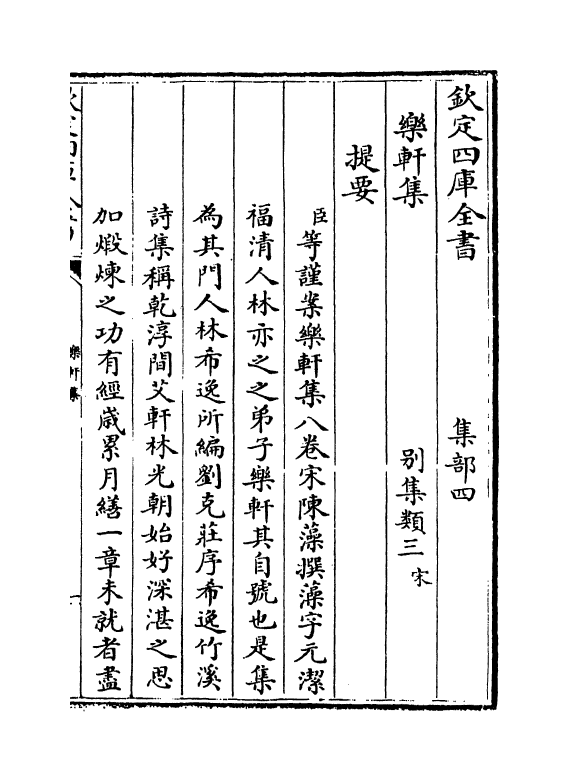 欽定四庫全書　集部四
樂軒集　别集類三宋
提要
臣等謹案樂軒集八卷宋陳藻撰藻字元潔
福清人林亦之之弟子樂軒其自號也是集
為其門人林希逸所編劉克莊序希逸竹溪
詩集稱乾淳間艾軒林光朝始好深湛之思
加煅煉之功有經嵗累月繕一章未就者盡
樂軒集